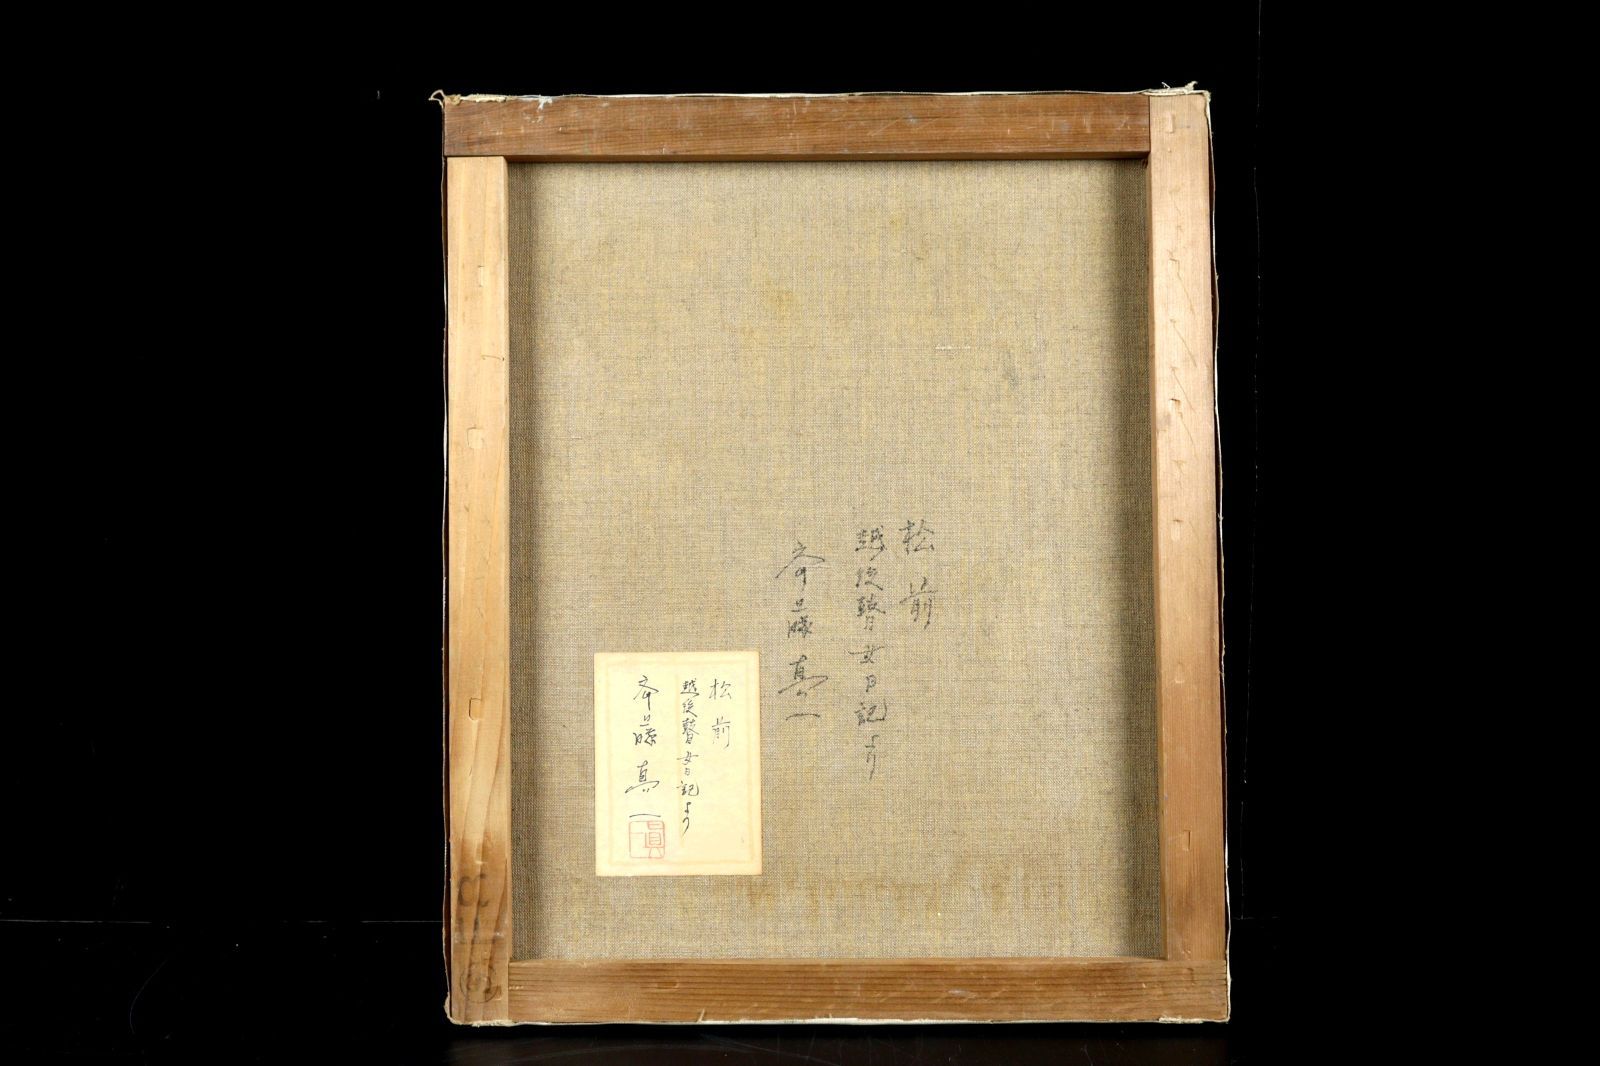 松前
越後瞽女日記より
斉藤真一
松前
越後瞽女日記より
斉藤真一
眞一